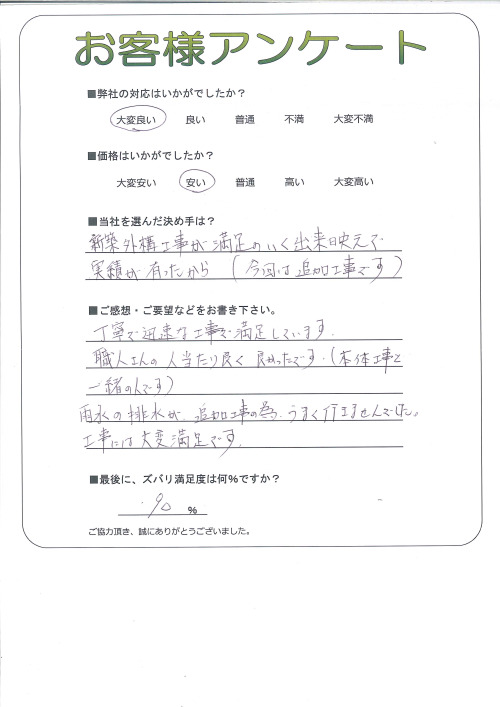 お客様アンケート
■弊社の対応はいかがでしたか？
大変良い 良い 普通 不満 大変不満
■価格はいかがでしたか？
大変安い 安い 普通 高い 大変高い
■当社を選んだ決め手は？
新築外構工事が満足のいく出来映えで
実績が有ったから（今回は追加工事です）
■ご感想・ご要望などをお書き下さい。
丁寧で迅速な工事で満足しています.
職人さんの人当たり良く良かったです.（本体工事と
一緒の人です）
雨水の排水が、追加工事の為、うまく行きませんでした。
工事には大変満足です.
■最後に、ズバリ満足度は何％ですか？
90 ％
ご協力頂き、誠にありがとうございました。